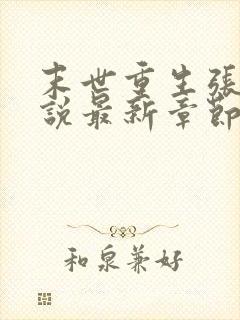 末世重生張
說最新章節
和泉兼好